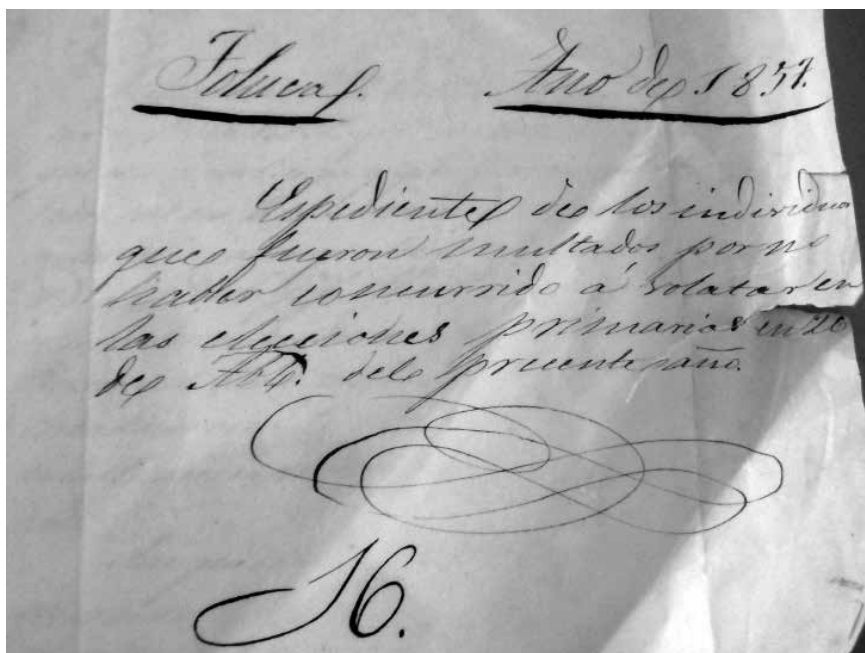 Toluca.
Año de 1857.
Espediente de los individuos
que fueron multados por no
haber concurrido á votar en
las elecciones primarias en 26
de del presente año.
16.